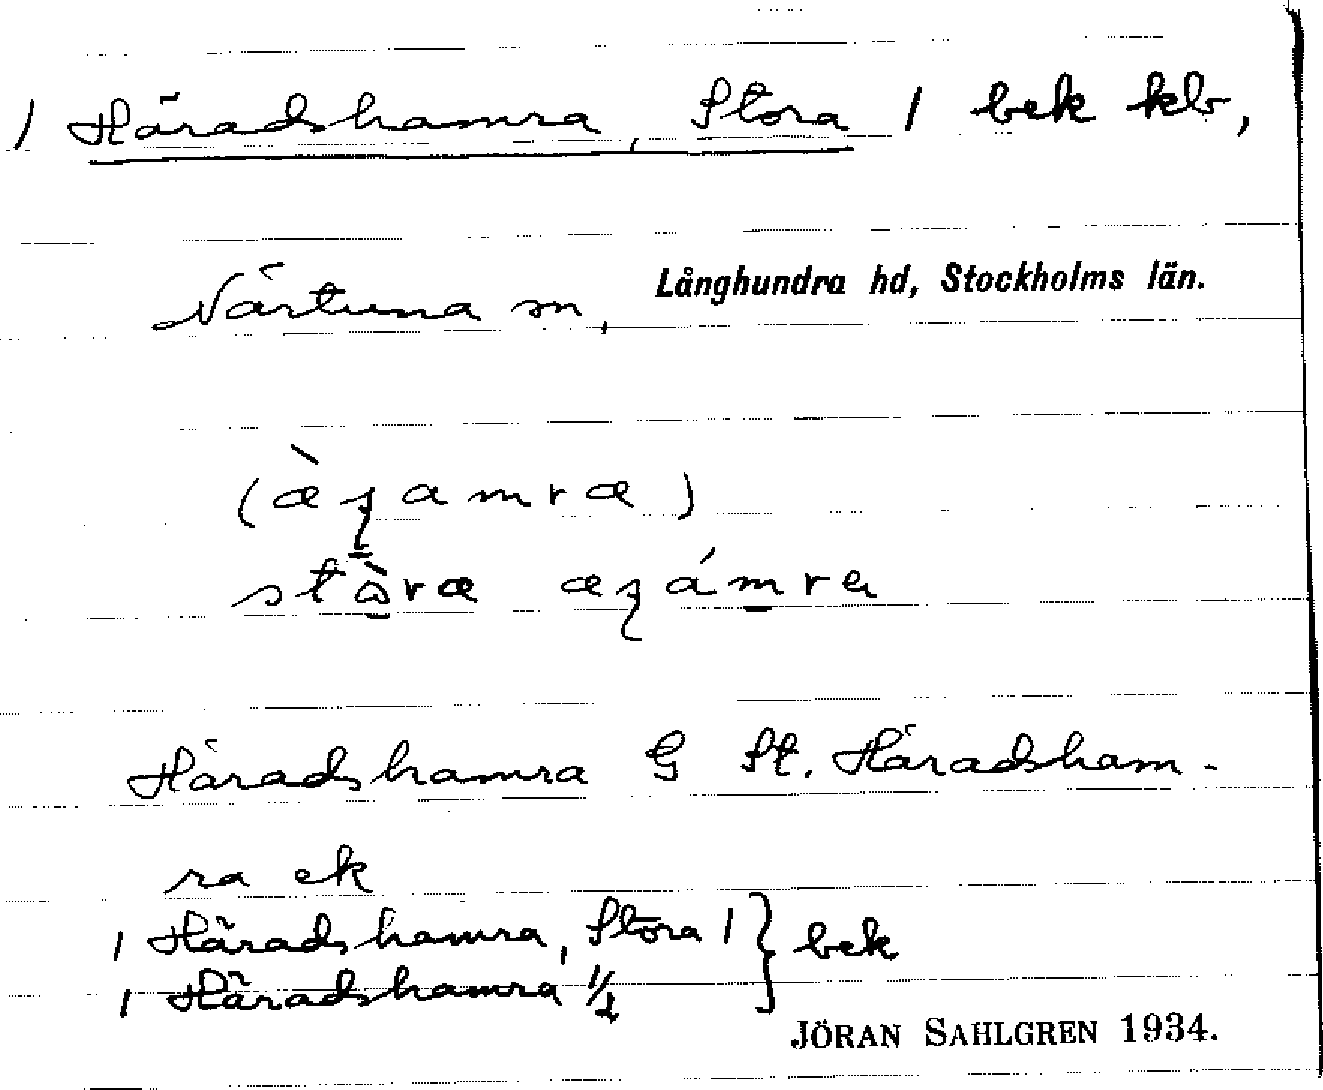 1 Häradshamra, Stora 1 bek klb,
Närtuna sn, Långhundra hd, Stockholms län.
Häradshamra G St. Häradsham-
ra ek
1 Häradshamra, Stora 1 } bek
1 Häradshamra ½
JÖRAN SAHLGREN 1934.